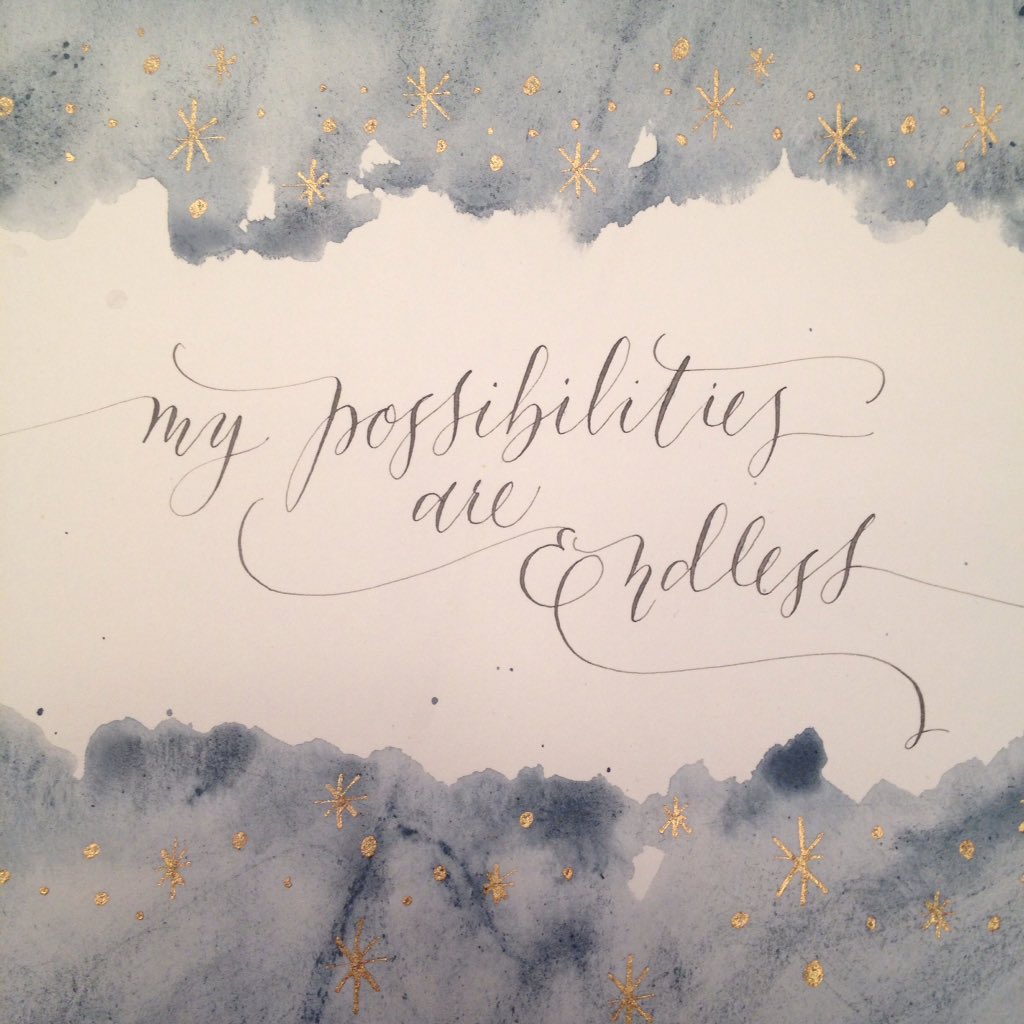 my possibilities
are
Endless